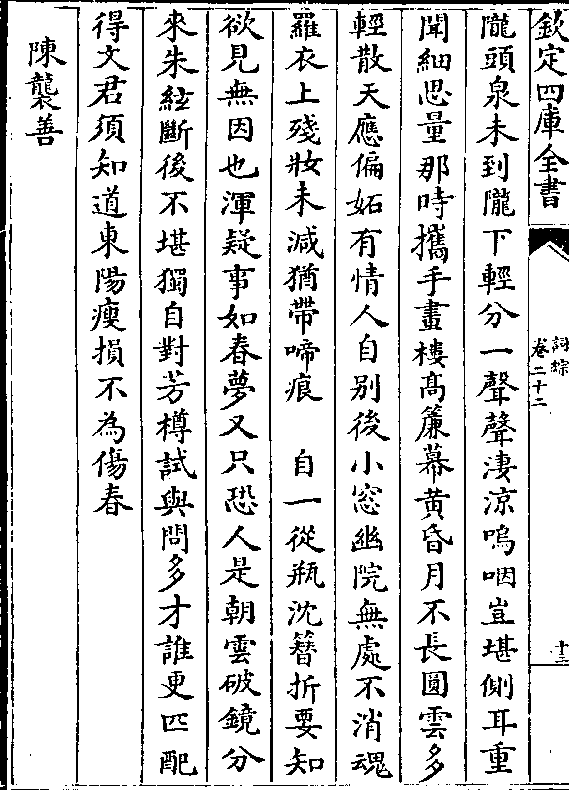 欽定四庫全書
詞綜
卷二十二
十三
隴頭泉未到隴下輕分一聲聲淒涼嗚咽豈堪側耳重
聞細思量那時攜手畫樓髙簾幕黃昏月不長圓雲多
輕散天應偏妬有情人自别後小窓幽院無處不消魂
羅衣上殘妝未減猶帶啼痕　自一從瓶沈簪折要知
欲見無因也渾疑事如春夢又只恐人是朝雲破鏡分
來朱絃斷後不堪獨自對芳樽試與問多才誰更匹配
得文君須知道東陽瘦損不為傷春
陳襲善